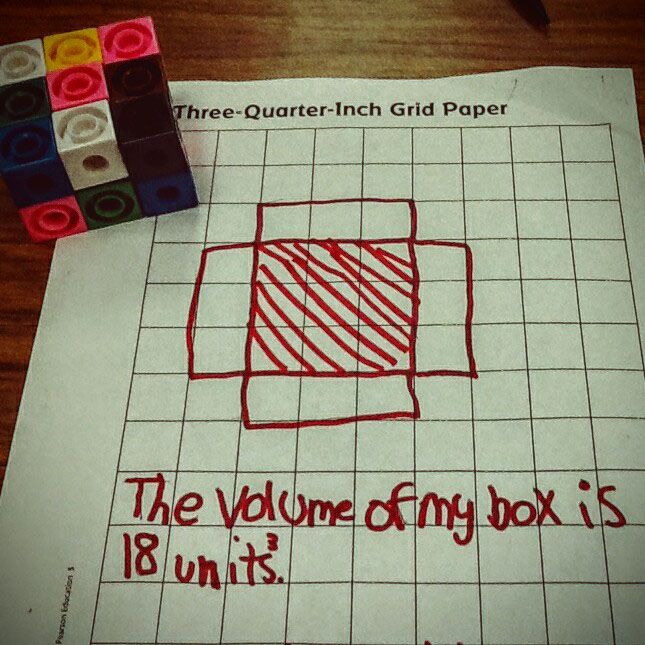 Three-Quarter-Inch Grid Paper
The volume of my box is
18 units³.
Pearson Education 5